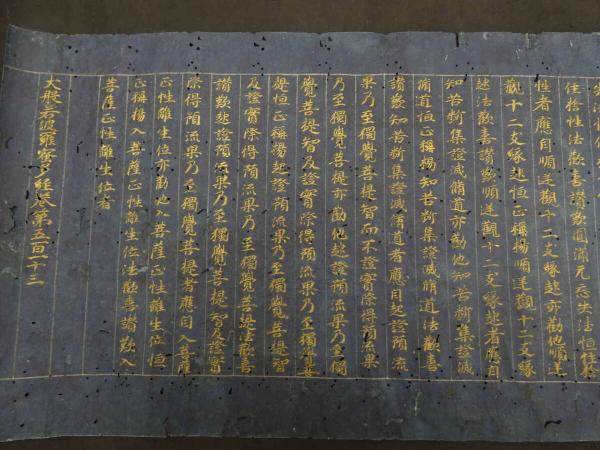 住捨性法歡喜讚歎圓滿无忘失法恒住捨
性者應自順逆觀十二支緣起亦勸他順逆
觀十二支緣起恒正稱揚順逆觀十二支緣
起法歡喜讚歎順逆觀十二支緣起者應自
知苦斷集證滅脩道亦勸他知苦斷集證滅
脩道恒正稱揚知苦斷集證滅脩道法歡喜
讚歎知苦斷集證滅脩道者應自起證預流
果乃至獨覺菩提智而不證實際得預流果
乃至獨覺菩提亦勸他起證預流果乃至獨
覺菩提智及證實際得預流果乃至獨覺菩
提恒正稱揚起證預流果乃至獨覺菩提智
及證實際得預流果乃至獨覺菩提法歡喜
讚歎起證預流果乃至獨覺菩提智及證實
際得預流果乃至獨覺菩提者應自入菩薩
正性離生位亦勸他入菩薩正性離生位恒
正稱揚入菩薩正性離生位法歡喜讚歎入
菩薩正性離生位者
大般若波羅蜜多經卷第五百一十三